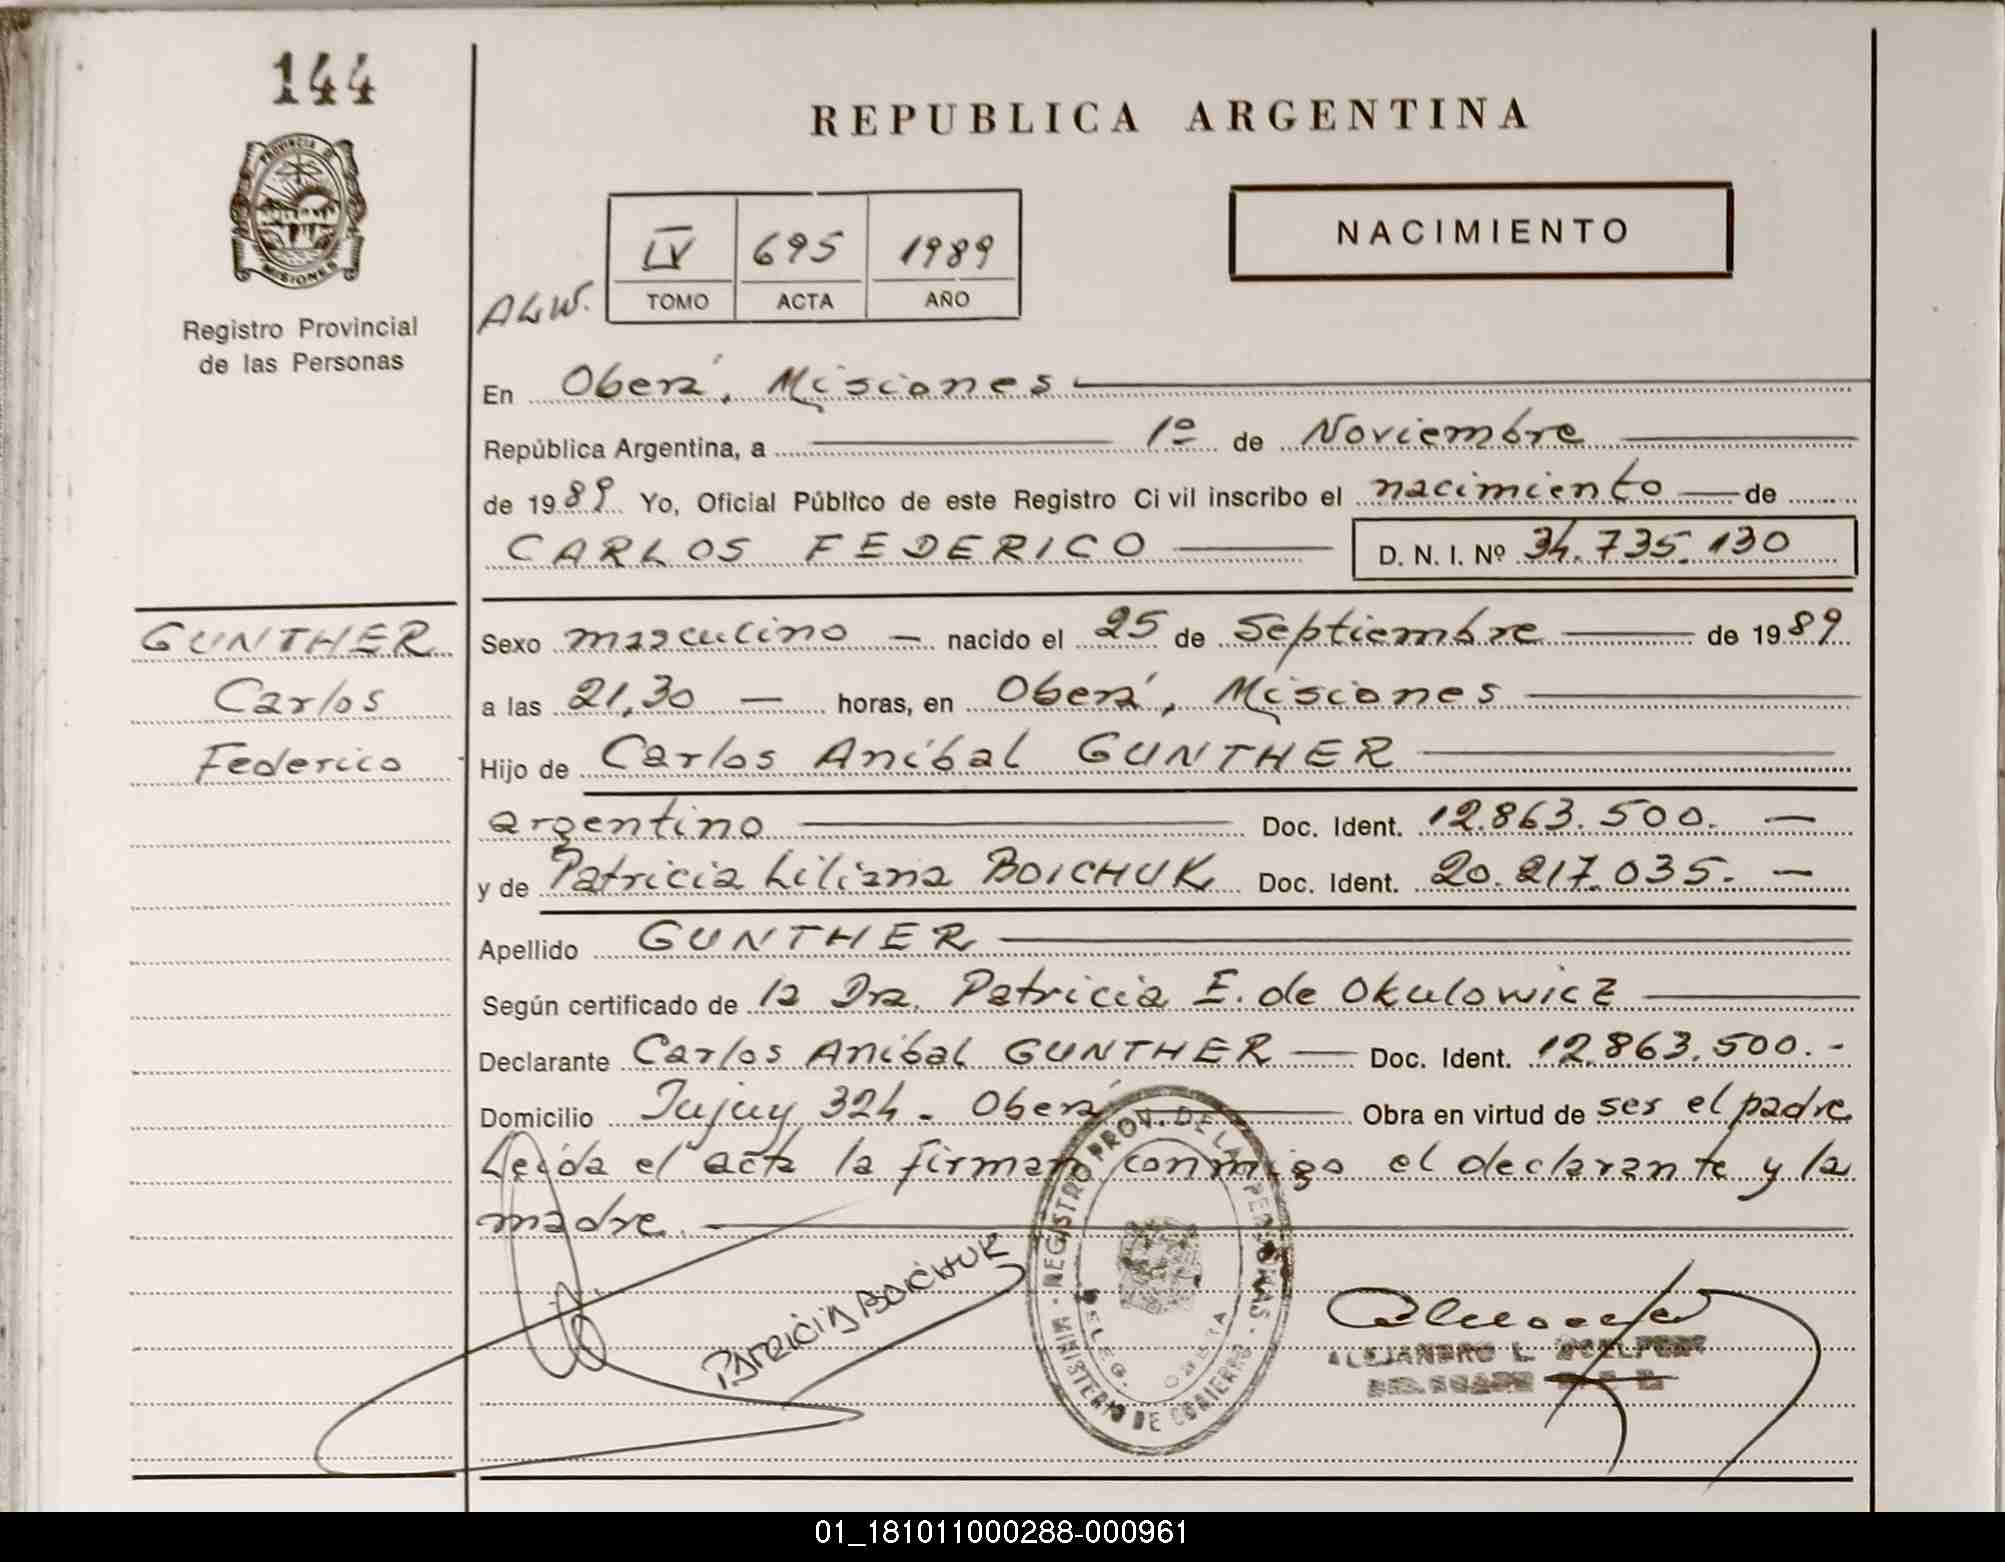 144
REPUBLICA ARGENTINA
PROVINCIA DE
MISIONES
Registro Provincial
de las Personas
NACIMIENTO
IV 695 1989
TOMO ACTA AÑO
En Oberá, Misiones
República Argentina, a 1º de Noviembre
de 1989 Yo, Oficial Público de este Registro Civil inscribo el nacimiento de
CARLOS FEDERICO D. N. I. Nº 34.735.130
GUNTHER
Carlos
Federico
Sexo masculino nacido el 25 de Septiembre de 1989
a las 21,30 horas, en Oberá, Misiones
Hijo de Carlos Aníbal GUNTHER
argentino Doc. Ident. 12.863.500.
y de Patricia Liliana BOICHUK Doc. Ident. 20.217.035.
Apellido GUNTHER
Según certificado de la Dra. Patricia E. de Okulowicz
Declarante Carlos Aníbal GUNTHER Doc. Ident. 12.863.500.-
Domicilio Jujuy 324 - Oberá Obra en virtud de ser el padre
Leída el acta la firman conmigo el declarante y la
madre.
PATRICIA BOICHUK
REGISTRO PROV. DE LAS PERSONAS
MINISTERIO DE GOBIERNO
DELEG. OBERA
ALEJANDRO L.
01_181011000288-000961